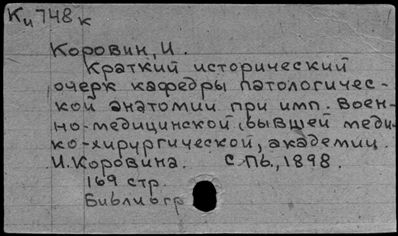 Ки748к
Коровин, И.
Краткий исторический
очерк кафедры патологичес-
кой анатомии при имп. Воен-
но-медицинской, бывшей меди-
ко-хирургической, академии
И. Коровина. С.Пб., 1898.
169 стр.
Библиогр